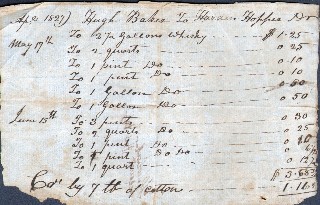 Apl 1827) Hugh Baker To Dr
May 17th To 2½ Gallons Whisky $ 1.25
To 2 quarts 0 25
To 1 pint Do 0 10
To 1 pint Do 0 10
To 1 Gallon Do 0 50
To 1 Gallon Do 0 50
June 15th To 3 pints 0 30
To 2 quarts Do 0 25
To 1 pint Do 0 10
To pint Do
To 1 quart 0 12½
$ 3.
by 7 lb of cotton